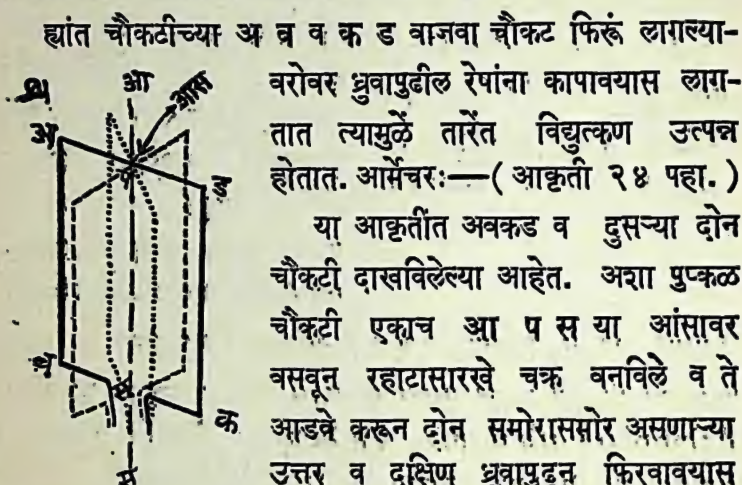 ह्यांत चौकटीच्या अ ब व क ड बाजवा चौकट फिरूं लागल्या-
वरोवर ध्रुवापुढील रेषांना कापावयास लाग-
तात त्यामुळें तारेंत विद्युत्कण उत्पन्न
होतात. आर्मेचरः—( आकृती २४ पहा. )
या आकृतींत अवकड व दुसऱ्या दोन
चौकटी दाखविलेल्या आहेत. अशा पुष्कळ
चौकटी एकाच आ प स या आंसावर
वसवून रहाटासारखे चक्र वनविले व ते
आडवे करून दोन समोरासमोर असणाऱ्या
उत्तर व दक्षिण ध्रुवापुढून फिरवावयास
आ
आस
अ
प
ड
ब
क
स